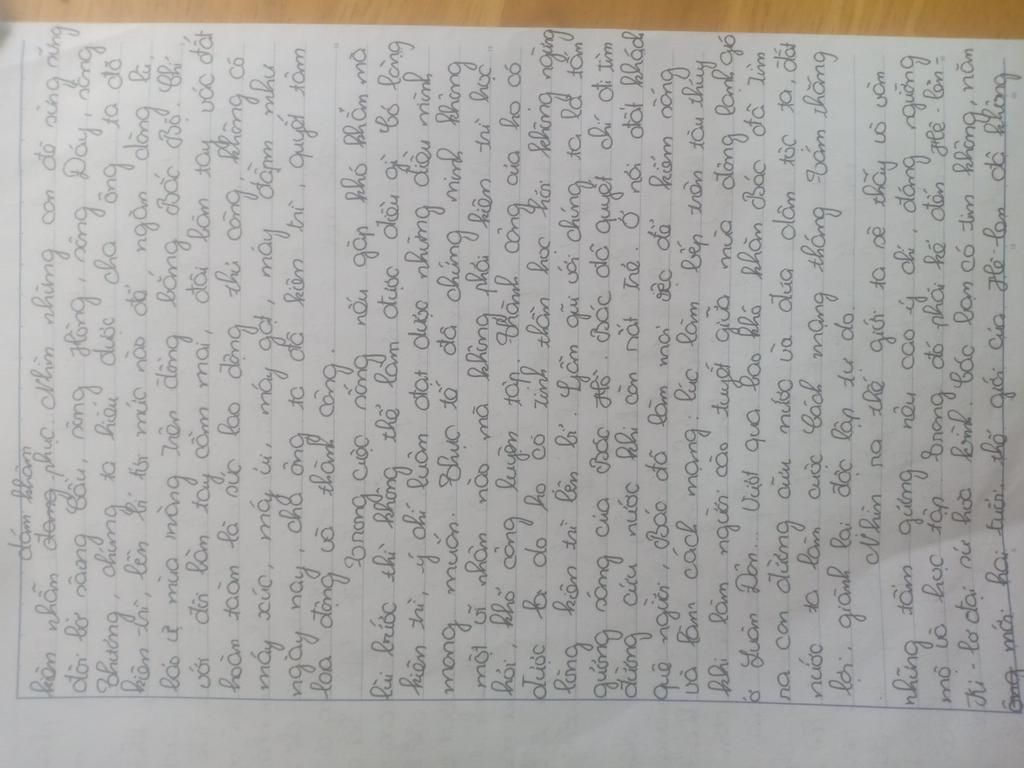 dám khâm
kiên nhẫn đang phục. Nhìn những con đê sừng sững
đôi bờ sông Cầu, sông Hồng, sông Đáy, sông
Thương, chúng ta hiểu được cha ông ta đã
kiên trì, bền bỉ tới mức nào để ngăn dòng lũ,
bảo vệ mùa màng trên đồng bằng Bắc Bộ. Chỉ
với đôi bàn tay cầm mai, đôi bàn tay vác đất
hoàn toàn là sức lao động thủ công không có
máy xúc, máy ủi, máy gạt, máy đầm như
ngày nay, cha ông ta đã kiên trì, quyết tâm
lao động và thành công.
Trong cuộc sống nếu gặp khó khăn mà
lùi bước thì không thể làm được điều gì. Có lòng
kiên trì, ý chí luôn đạt được những điều mình
mong muốn. Thực tế đã chứng minh không
một vĩ nhân nào mà không phải kiên trì học
hỏi, khổ công luyện tập. Thành công của họ có
được là do họ có tinh thần học hỏi không ngừng
lòng kiên trì bền bỉ. Gần gũi với chúng ta là tấm
gương sáng của Bác Hồ. Bác đã quyết chí đi tìm
đường cứu nước khi còn rất trẻ. Ở nơi đất khách
quê người, Bác đã làm mọi việc để kiếm sống
và làm cách mạng: lúc làm bếp trên tàu thủy
khi làm người cào tuyết giữa mùa đông lạnh giá
ở Luân Đôn... Vượt qua bao khó khăn Bác đã tìm
ra con đường cứu nước và đưa dân tộc ta, đất
nước ta làm cuộc Cách mạng tháng Tám thắng
lợi, giành lại độc lập tự do.
Nhìn ra thế giới ta sẽ thấy vô vàn
những tấm gương nêu cao ý chí, dáng ngưỡng
mộ và học tập. Trong đó phải kể đến Hê-len-
đi-lơ đại sứ hoà bình. Cậu bé lan có tim không, năm
ông mới hai tuổi, thế giới của Hê-len đã không